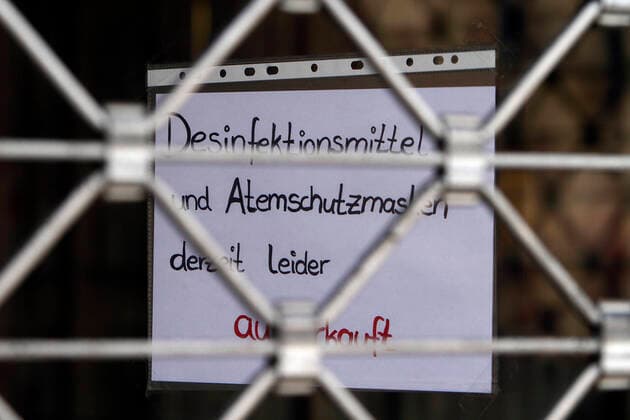 Desinfektionsmittel
und Atemschutzmasken
derzeit leider
ausverkauft